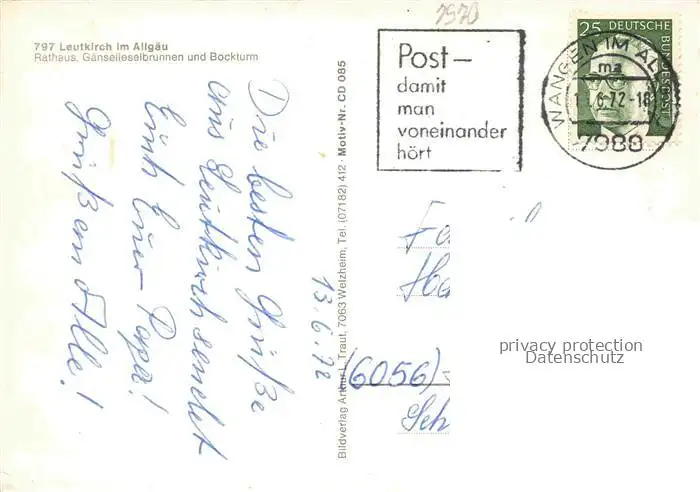 7970
797 Leutkirch im Allgäu
Rathaus, Gänselieselbrunnen und Bockturm
Die besten Grüße
aus Leutkirch sendet
Euch Euer Papa!
Grüßem Alle!
13.6.72
Bildverlag Arthur Traut, 7063 Welzheim, Tel. (07182) 412 · Motiv-Nr. CD 085
Post–
damit
man
voneinander
hört
25 DEUTSCHE
BUNDESPOST
WANGEN IM
ma
6.72-18
7988
Fa
Ha
(6056)
Sch
privacy protection
Datenschutz